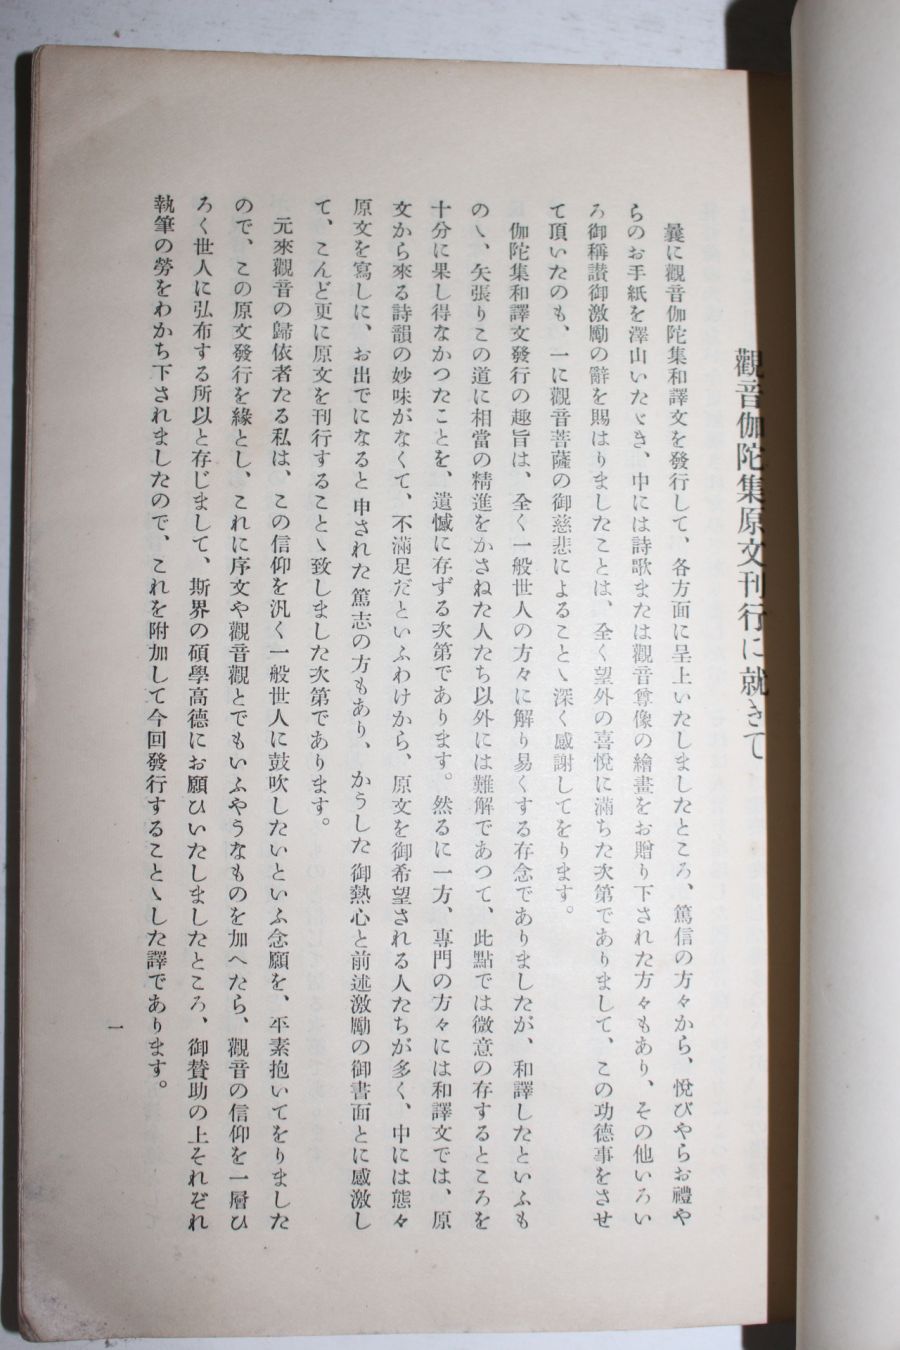 觀音伽陀集原文刊行に就きて
曩に觀音伽陀集和譯文を發行して、各方面に呈上いたしましたところ、篤信の方々から、悅びやらお禮や
らのお手紙を澤山いたゞき、中には詩歌または觀音尊像の繪畫をお贈り下された方々もあり、その他いろい
ろ御稱讃御激勵の辭を賜はりましたことは、全く望外の喜悅に滿ちた次第でありまして、この功德事をさせ
て頂いたのも、一に觀音菩薩の御慈悲によることゝ深く感謝してをります。
伽陀集和譯文發行の趣旨は、全く一般世人の方々に解り易くする存念でありましたが、和譯したといふも
のゝ、矢張りこの道に相當の精進をかさねた人たち以外には難解であつて、此點では微意の存するところを
十分に果し得なかつたことを、遺憾に存ずる次第であります。然るに一方、專門の方々には和譯文では、原
文から來る詩韻の妙味がなくて、不滿足だといふわけから、原文を御希望される人たちが多く、中には態々
原文を寫しに、お出でになると申された篤志の方もあり、かうした御熱心と前述激勵の御書面とに感激し
て、こんど更に原文を刊行することゝ致しました次第であります。
元來觀音の歸依者たる私は、この信仰を汎く一般世人に鼓吹したいといふ念願を、平素抱いてをりました
ので、この原文發行を緣とし、これに序文や觀音觀とでもいふやうなものを加へたら、觀音の信仰を一層ひ
ろく世人に弘布する所以と存じまして、斯界の碩學高德にお願ひいたしましたところ、御贊助の上それぞれ
執筆の勞をわかち下されましたので、これを附加して今回發行することゝした譯であります。
一